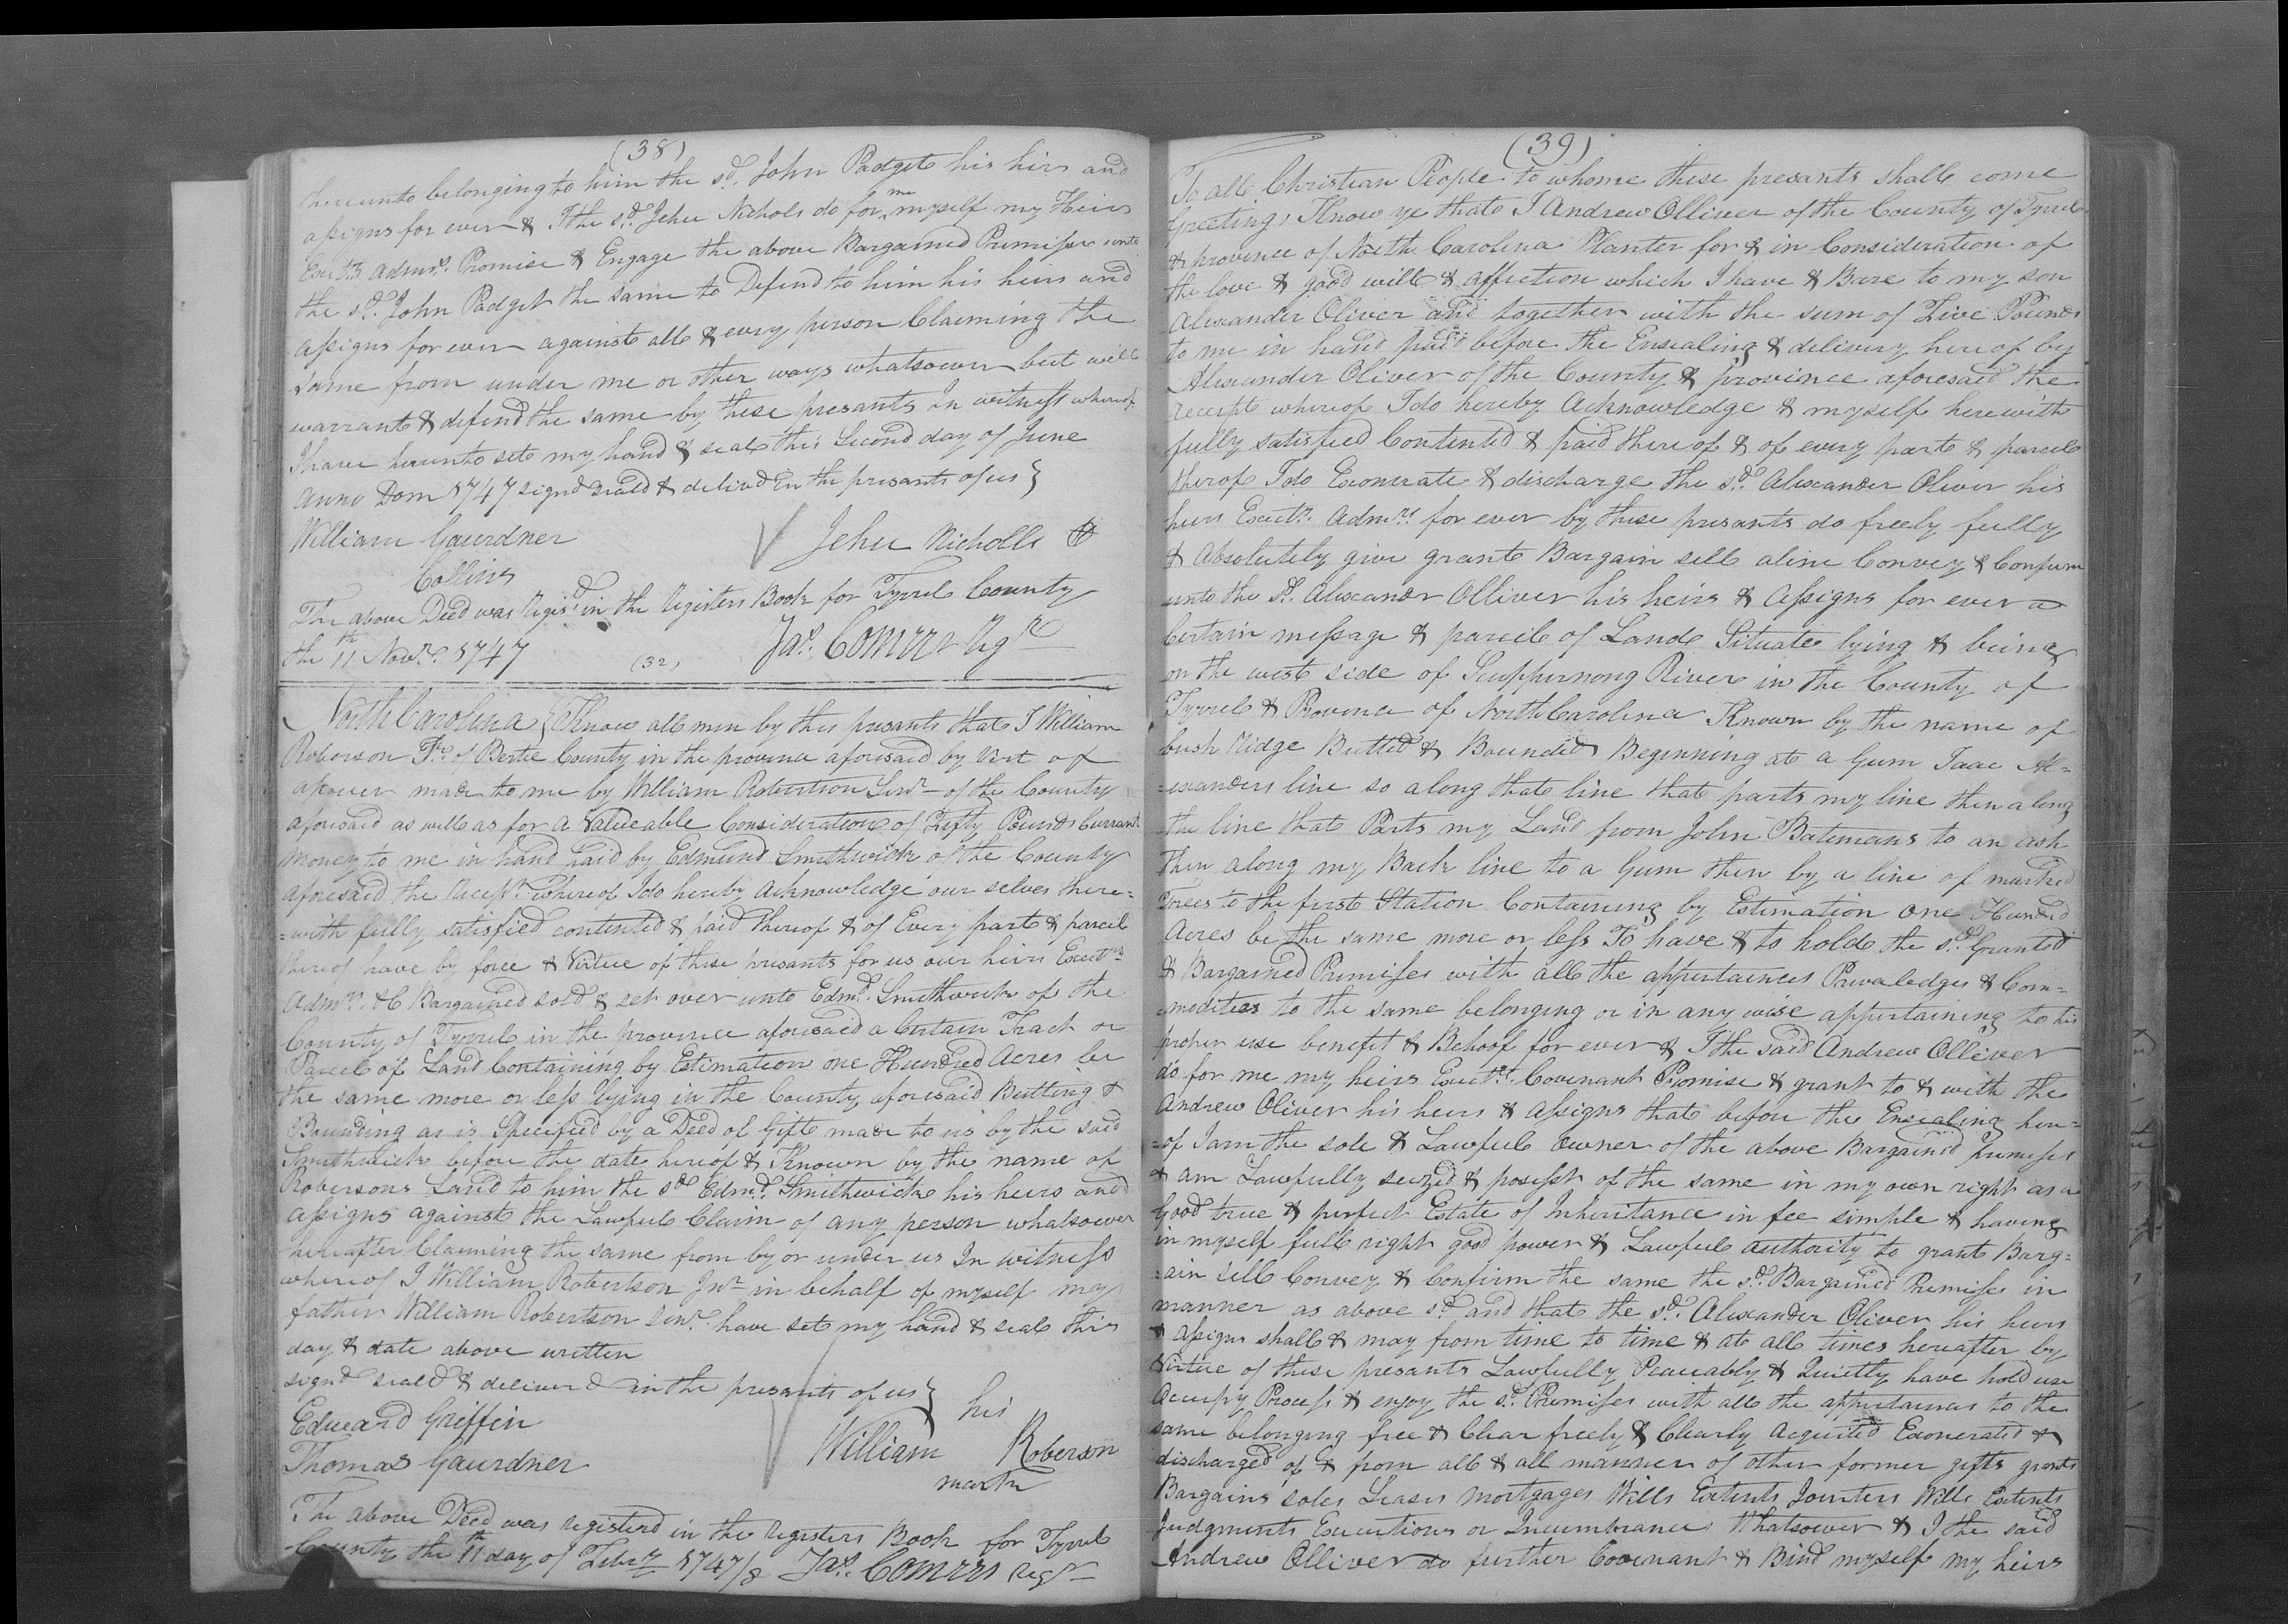 (38)
hereunto belonging to him the sd. John Padget his hirs and
assigns for ever & I the sd. Jehu Nichols do for me myself my Heirs
Admrs. Promise & Engage the above Bargained Premises unto
the sd. John Padget the same to Defend to him his heirs and
assigns for ever against all & every person Claiming the
same from under me or other ways whatsoever but will
warrant & defend the same by these presants In witness whereof
I have hereunto set my hand & seal this Second day of June
Anno Dom 1747 signd seald & delivd in the presants of us }
William Gaurdner
Jehu Nicholls
Collins
The above Deed was Regisd. in the Registers Book for Tyrrel County
the 11th Novr. 1747
Jas. Comrrs Regr
(32)
North Carolina { Know all men by thes presants that I William
Roberson Jr. of Bertie County in the province aforesaid by Vert of
a Power made to me by William Robertson Senr. of the County
aforesaid as well as for a Valueable Consideration of Fifty Pounds Currant
Money to me in hand paid by Edmund Smithwick of the County
aforesaid the Recept. whereof I do hereby Acknowledge our selves there=
=with fully satisfied contented & paid thereof & of Every part & parcel
thereof have by force & Virtue of these presants for us our heirs Exectrs
Admrs. &C Bargained sold & set over unto Edmd. Smithwick of the
County of Tyrrel in the province aforesaid a Certain Tract or
Parcel of Land Containing by Estimation one Hundred Acres be
the same more or less lying in the County aforesaid Butting &
Bounding as is Specified by a Deed of Gift made to us by the said
Smithwick before the date hereof & Known by the name of
Robersons Land to him the sd. Edmd. Smithwick his heirs and
assigns against the Lawful Claim of any person whatsoever
hereafter Claiming the same from by or under us In witness
whereof I William Robertson Junr in behalf of myself my
father William Robertson Senr. have set my hand & seal this
day & date above written
signd seald & deliverd in the presants of us }
his
Edward Griffin
William Roberson
Thomas Gaurdner
mark
The above Deed was registerd in the Registers Book for Tyrrel
County the 11th day of Febry 1747/8 Jas. Comrrs Regr
(39)
To all Christian People to whome these presants shall come
Greeting, Know ye that I Andrew Olliver of the County of Tyrrel
& province of North Carolina Planter for & in Consideration of
the love & good will & affection which I have & Bare to my son
Alexander Oliver and together with the sum of Five Pounds
to me in hand paid before the Ensealing & delivery hereof by
Alexander Oliver of the County & province aforesaid the
recerpt whereof I do hereby Acknowledge & myself herewith
fully satisfied Contented & paid thereof & of every part & parcel
therof I do Exonerate & discharge the sd. Alexander Oliver his
heirs Exectr. Admrs. for ever by these presants do freely fully
& Absolutely give grant Bargain sell aline Convey & Confirm
unto the sd. Alexander Olliver his heirs & Assigns for ever a
Certain message & parcel of Land Situate lying & being
on the west side of Scuppernong River in the County of
Tyrrel & Province of North Carolina Known by the name of
bush Ridge Butted & Bounded Beginning at a Gum Isaac Al=
=exanders line so along that line that parts my line then along
the line that Parts my Land from John Batemans to an ash
then along my Back line to a Gum then by a line of marked
Trees to the first Station Containing by Estimation one Hundrd
Acres be the same more or less To have & to hold the sd. Granted
& Bargained Premises with all the appertainces Privaledges & Com=
=modities to the same belonging or in any wise appertaining to his
proper use benefit & Behoof for ever & I the said Andrew Olliver
do for me my heirs Exectrs. Covenant Promise & grant to & with the
Andrew Oliver his heirs & Assigns that before the Ensealing here=
=of I am the sole & Lawful owner of the above Bargaind premises
& am Lawfully seized & posesst of the same in my own right as a
Good true & perfect Estate of Inheritance in fee simple & having
in myself full right good power & Lawful authority to grant Barg=
=ain sell Convey & Confirm the same the sd. Bargained Premises in
manner as above sd. and that the sd. Alexander Oliver his heirs
& Assigns shall & may from time to time & at all times hereafter by
Virtue of these presants Lawfully Peaceably & Quietly have hold use
Accupy Process & enjoy the sd. Premises with all the appertainces to the
same belonging free & Clear freely & Clearly Acquited Exonerated &
discharged of & from all & all manner of other former gifts grants
Bargains soles Leases Mortgages Wills Extents Jointers Wills Extents
Judgments Executions or Incumbrances Whatsoever & I the said
Andrew Olliver do further Covenant & Bind myself my heirs